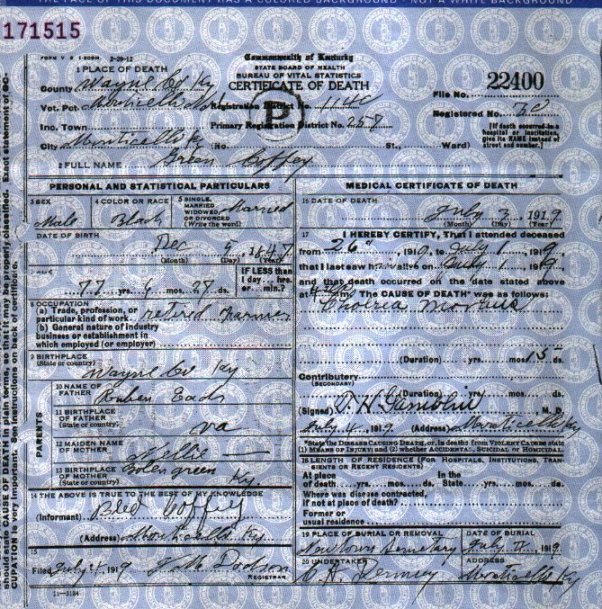 THE FACE OF THIS DOCUMENT HAS A COLORED BACKGROUND - NOT A WHITE BACKGROUND
171515
FORM V S 1-
Commonwealth of Kentucky
STATE BOARD OF HEALTH
BUREAU OF VITAL STATISTICS
CERTIFICATE OF DEATH
1 PLACE OF DEATH
County Wayne Co Ky
Vot. Pct. Monticello
Registration District
Inc. Town
Primary Registration District No.
City Monticello Ky (No. St., Ward)
P
File No. 22400
Registered No.
[If death occurred in a hospital or institution, give its NAME instead of street and number.]
2 FULL NAME Green Coffey
PERSONAL AND STATISTICAL PARTICULARS
3 SEX
Male
4 COLOR OR RACE
Black
5 SINGLE, MARRIED WIDOWED OR DIVORCED (Write the word)
Married
DATE OF BIRTH
Dec 5, 184
(Month) (Day) (Year)
77 yrs. 6 mos. 28 ds.
IF LESS than 1 day... hrs. or... min.?
8 OCCUPATION
(a) Trade, profession, or particular kind of work retired Farmer
(b) General nature of industry business or establishment in which employed (or employer)
9 BIRTHPLACE
(State or country)
Wayne Co Ky
PARENTS
10 NAME OF FATHER
Ruben Eads
11 BIRTHPLACE OF FATHER
(State or country)
Va
12 MAIDEN NAME OF MOTHER
Nellie
13 BIRTHPLACE OF MOTHER
(State or country)
Bolen green Ky.
14 THE ABOVE IS TRUE TO THE BEST OF MY KNOWLEDGE
(Informant) Bled Coffey
(Address) Monticello Ky
15
Filed July 4, 1919 Dodson
REGISTRAR
11-3184
MEDICAL CERTIFICATE OF DEATH
16 DATE OF DEATH
July 3, 1919
(Month) (Day) (Year)
17 I HEREBY CERTIFY, That I attended deceased
from 26, 1919, to July 1, 1919,
that I last saw h alive on July 1, 1919,
and that death occurred on the date stated above
at m. The CAUSE OF DEATH* was as follows:
Cholrea Morbus
(Duration) yrs. mos. 15 ds.
Contributory
(SECONDARY)
(Duration) yrs. mos. ds.
(Signed) M. D.
July 4, 1919 (Address) Monticello Ky
*State the DISEASE CAUSING DEATH, or, in deaths from VIOLENT CAUSES state (1) MEANS OF INJURY; and (2) whether ACCIDENTAL, SUICIDAL or HOMICIDAL.
18 LENGTH OF RESIDENCE (FOR HOSPITALS, INSTITUTIONS, TRANSIENTS OR RECENT RESIDENTS)
At place of death yrs. mos. ds. In the State yrs. mos. ds.
Where was disease contracted, if not at place of death?
Former or usual residence
19 PLACE OF BURIAL OR REMOVAL
DATE OF BURIAL
July 4, 1919
20 UNDERTAKER
ADDRESS
Monticello Ky
should state CAUSE OF DEATH in plain terms, so that it may be properly classified. Exact statement of OCCUPATION is very important. See instructions on back of certificate.